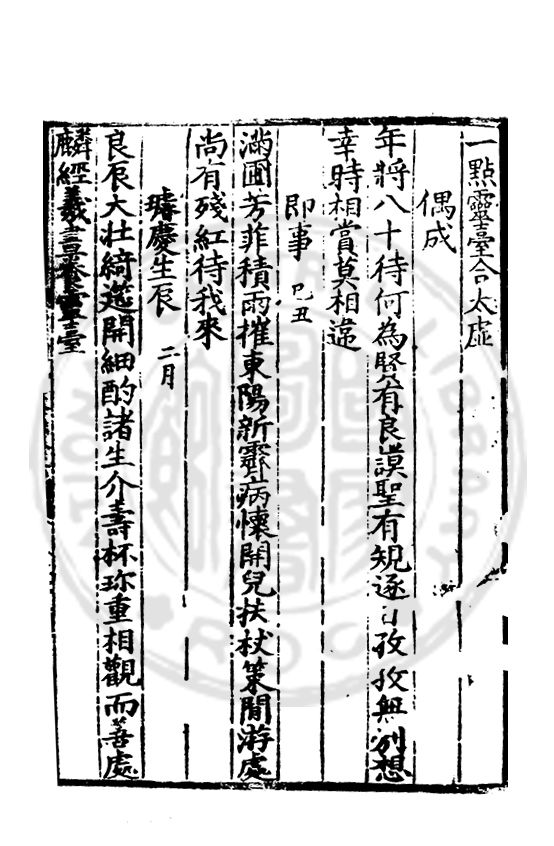 一點靈臺合太虛
偶成
年將八十待何為賢有良謨聖有規逐日孜孜無別想
幸時相賞莫相違
即事 己丑
滿圃芳菲積雨摧東陽新霽病懷開兒扶杖策閒游處
尚有殘紅待我來
璩慶生辰 二月
良辰大壯綺筵開細酌諸生介壽杯珎重相觀而善處
麟經羲畫靈臺